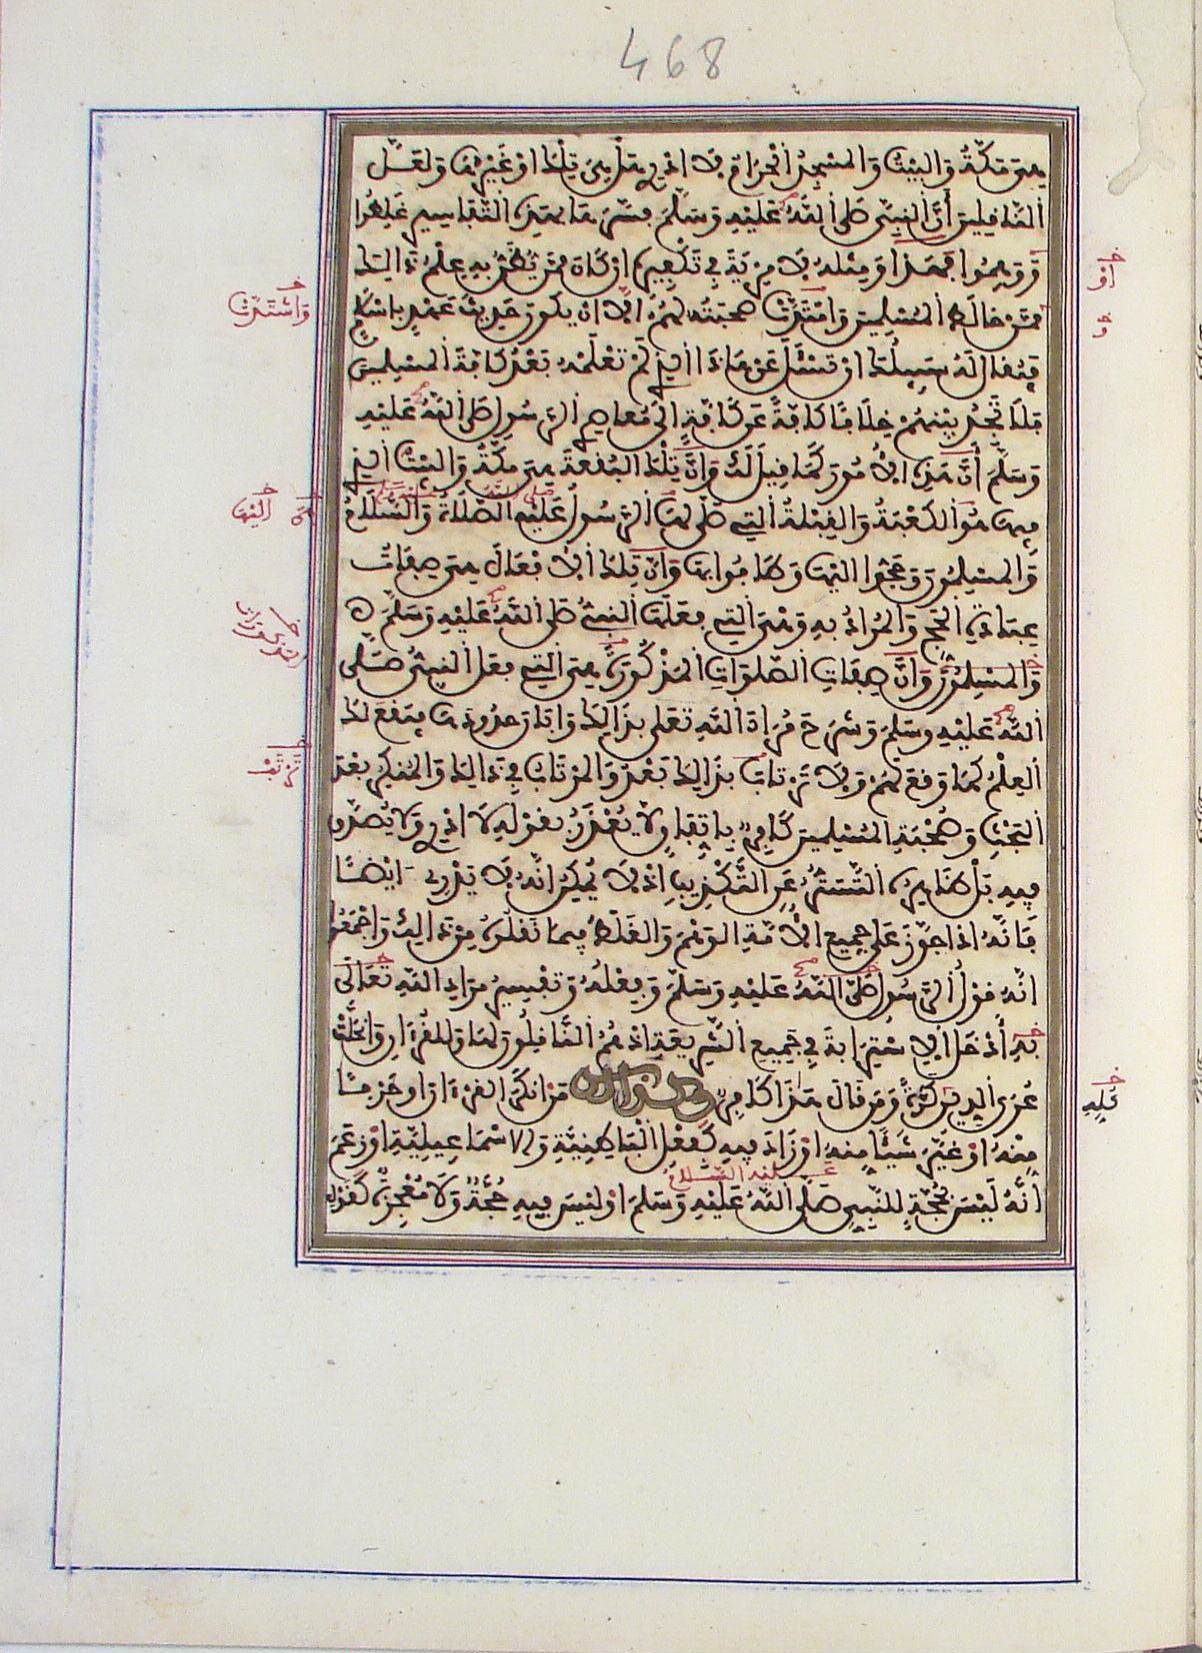 468
هي مكة والبيت والمسجد الحرام فلا ادري هل هي تلك او غيرها ولعل
الناقلين أن النبي صلى الله عليه وسلم فسرها بهذه التفاسير غلطوا
ووهموا فهذا ومثله لا مرية في تكفيره ان كان ممن يظن به علم ذالك
ممن خالط المسلمين وامتدت صحبته لهم الا ان يكون حديث عهد باسلام
فيقال له سبيلك ان تسئل عن هاذا الذي لم تعلمه بعد كافة المسلمين
فلا تجد بينهم خلافا كافة عن كافة الى معاصر الرسول صلى الله عليه
وسلم أن هذه الأمور كما قيل لك وان تلك البقعة هي مكة والبيت الذي
فيها هو الكعبة والقبلة التي صلى لها الرسول عليه الصلاة والسلام
والمسلمون وحجوا اليها وطافوا بها وان تلك الأفعال هي صفات
عبادة الحج والمراد به وهي التي فعلها النبي صلى الله عليه وسلم
والمسلمون وان صفات الصلوات المذكورة هي التي فعل النبي صلى
الله عليه وسلم وشرح مراد الله تعلى بذالك وابان حدودها فيقع لك
العلم كما وقع لهم ولا ترتاب بذالك بعد والمرتاب في ذالك والمنكر بعد
البحث وصحبة المسلمين كافر باتفاق ولا يعذر بقوله لا ادري ولا يصدق
فيه بل ظاهره التستر عن التكذيب اذ لا يمكن انه لا يدري ايضا
فانه اذا جوز على جميع الأمة الوهم والغلط فيما نقلوه من ذالك واجمعوا
انه قول الرسول صلى الله عليه وسلم وفعله وتفسير مراد الله تعالى
به أدخل الاسترابة في جميع الشريعة اذ هم الناقلون لها وللقرءان وانحلت
عرى الدين كرة ومن قال هذا كافر وكذالك من انكر القرءان او حرفا
منه او غير شيئا منه او زاد فيه كفعل الباطنية والاسماعيلية او زعم
عليه السلام
انه ليس بحجة للنبي صلى الله عليه وسلم او ليس فيه حجة ولا معجزة كقول
او
واشتدت
اليها
ترتب